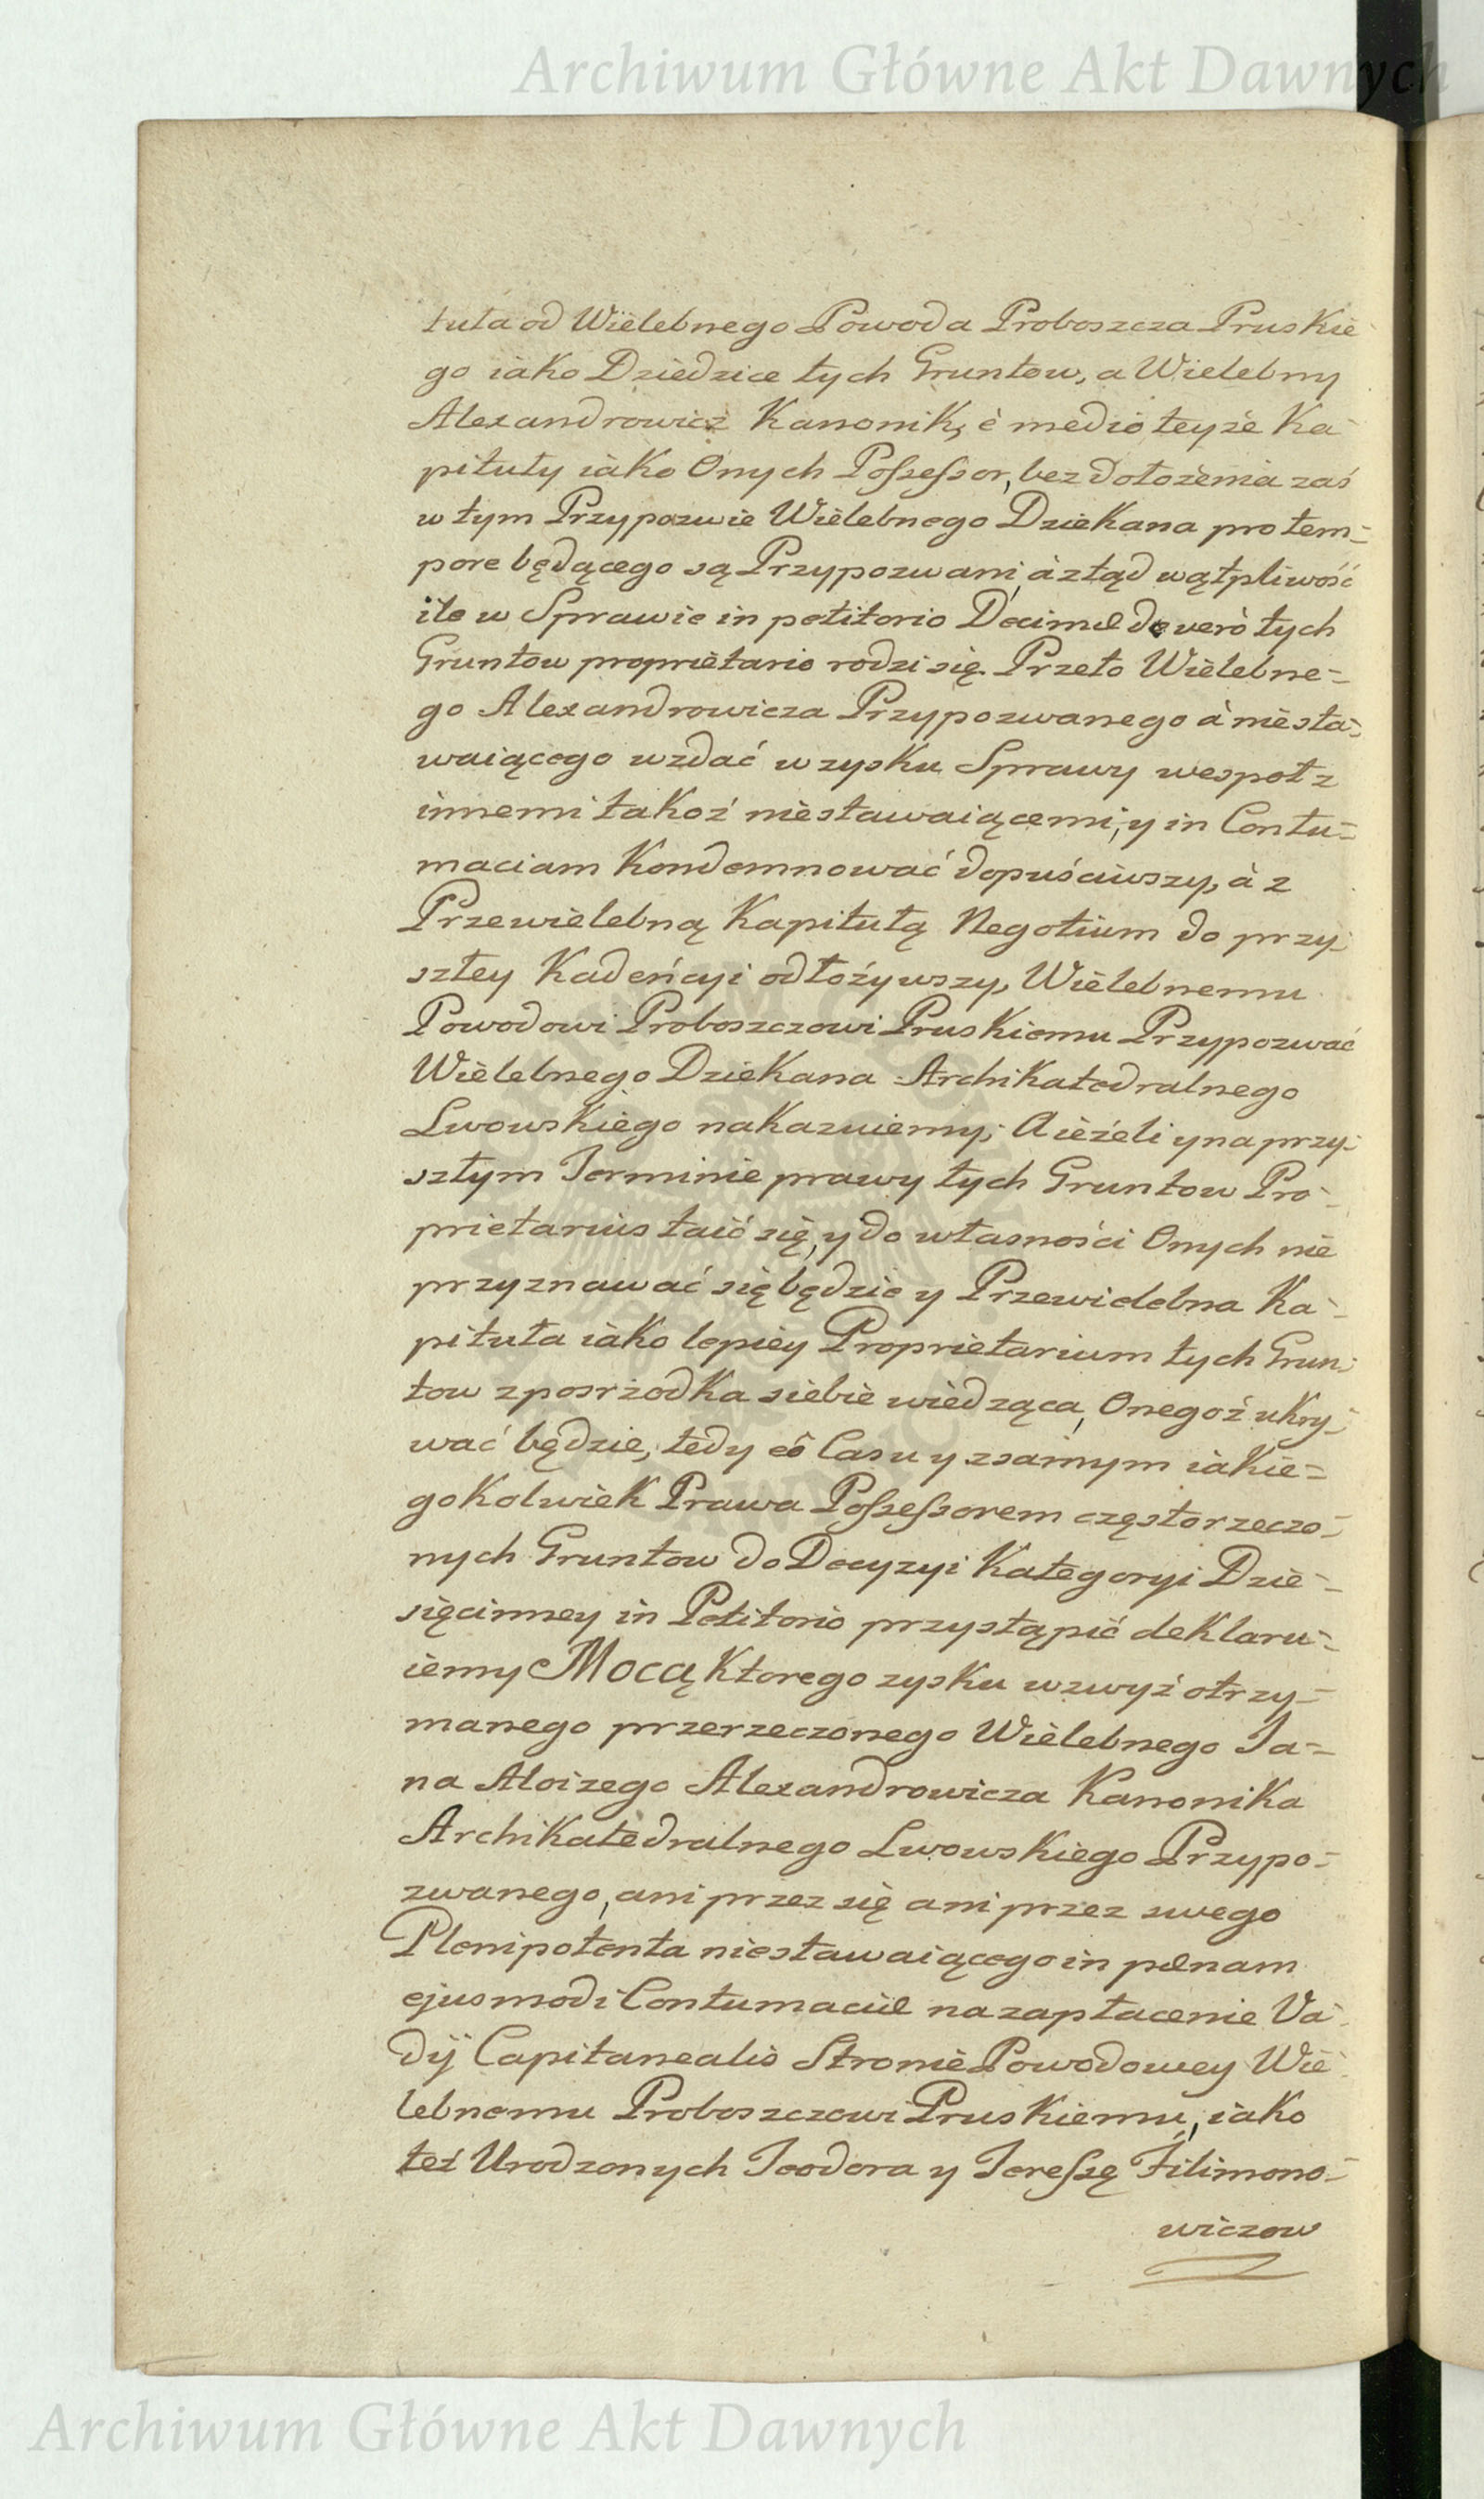 Archiwum Główne Akt Dawnych
tuła od Wielebnego Powoda Proboszcza Pruskie
go iako Dziedzice tych Gruntow, a Wielebny
Alexandrowicz Kanonik, è medio teyże Ka-
pituły iako Onych Possessor, bez dołożenia zaś
w tym Przypozwie Wielebnego Dziekana pro tem-
pore będącego są Przypozwani, à ztąd wątpliwość
ile w Sprawie in petitorio Decimæ de verò tych
Gruntow proprietario rodzi się. Przeto Wielebne-
go Alexandrowicza Przypozwanego à niesta-
waiącego wzdać w zysku Sprawy wespoł z
innemi takoż niestawaiącemi, y in Contu-
maciam Kondemnować dopuściwszy, à z
Przewielebną Kapitułą Negotium do przy-
szłey Kadeńcyi odłożywszy, Wielebnemu
Powodowi Proboszczowi Pruskiemu Przypozwać
Wielebnego Dziekana Archikatedralnego
Lwowskiego nakazuiemy; A ieżeli y na przy-
szłym Terminie prawy tych Gruntow Pro-
prietarius taić się, y do własności Onych nie
przyznawać się będzie y Przewielebna Ka-
pituła iako lepiey Proprietarium tych Grun-
tow z posrzodka siebie wiedząca, Onegoż ukry-
wać będzie, tedy eô Casu y z samym iakie-
gokolwiek Prawa Possessorem często rzeczo-
nych Gruntow do Decyzyi Kategoryi Dzie-
sięcinney in Petitorio przystąpić deklaru-
iemy Mocą Ktorego zysku wzwyż otrzy-
manego przerzeczonego Wielebnego Ja-
na Aloizego Alexandrowicza Kanonika
Archikatedralnego Lwowskiego Przypo-
zwanego, ani przez się ani przez swego
Plenipotenta niestawaiącego in pœnam
ejusmodi Contumaciæ na zapłacenie Va-
dij Capitanealis Stronie Powodowey Wie
lebnemu Proboszczowi Pruskiemu, iako
też Urodzonych Teodora y Teressę Filimono-
wiczow
Archiwum Główne Akt Dawnych